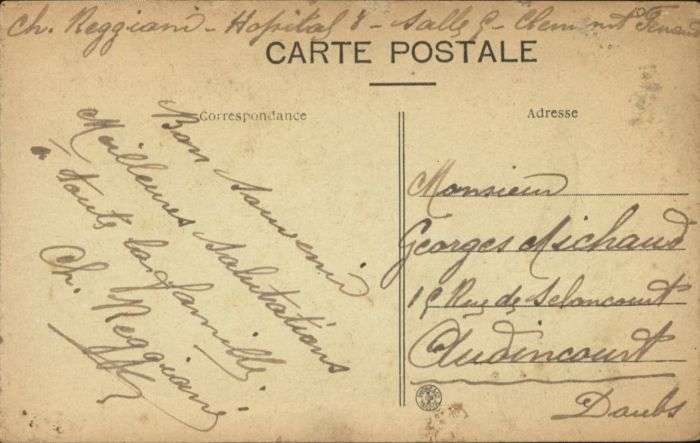 Ch. Reggiani - Hopital 8 - Salle 9 - Clermont Ferrand
CARTE POSTALE
Correspondance
Bon Souvenir
Meilleures Salutations
à toute la famille
Ch. Reggiani
Adresse
Monsieur
Georges Michaud
19 Rue de Seloncourt
Audincourt
Doubs